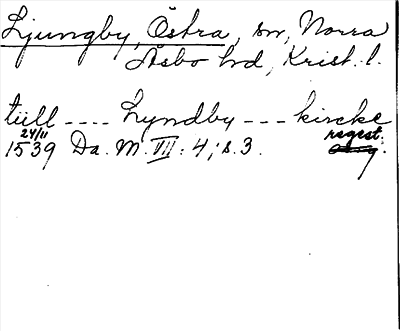 Ljungby, Östra, sn, Norra
Åsbo hd, Krist. l.
tiill .... Lyndby --- kircke
24/11 regest.
1539 Da. M. VII: 4, s. 3.